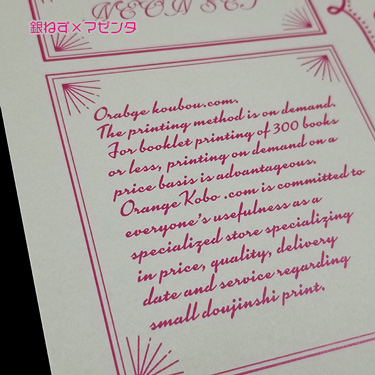 銀ねず×マゼンタ
NEON SET
Orabge koubou.com.
The printing method is on demand.
For booklet printing of 300 books
or less, printing on demand on a
price basis is advantageous.
OrangeKobo .com is committed to
everyone's usefulness as a
specialized store specializing
in price, quality, delivery
date and service regarding
small doujinshi print.